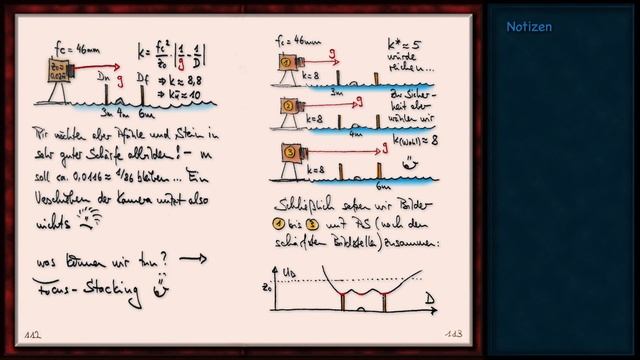 fc = 46mm
k = fc²/z₀ · |1/g − 1/D|
g
Dn
Df
⇒ k ≈ 8,8
⇒ kü ≈ 10
3m 4m 6m
Wir möchten aber Pfähle und Stein in
sehr guter Schärfe abbilden! – m
soll ca. 0,0116 ≈ 1/86 bleiben... Ein
Verschieben der Kamera nützt also
nichts
was können wir tun? →
Focus-Stacking
112
fc = 46mm
k* ≈ 5
würde
reichen...
1
g
k=8
3m
Zur Sicher-
heit aber
wählen wir
k(Wahl) ≈ 8
2
g
k=8
4m
3
g
k=8
6m
Schließlich setzen wir Bilder
1 bis 3 mit PS (nach den
schärfsten Bildstellen) zusammen:
UD
z₀
D
113
Notizen